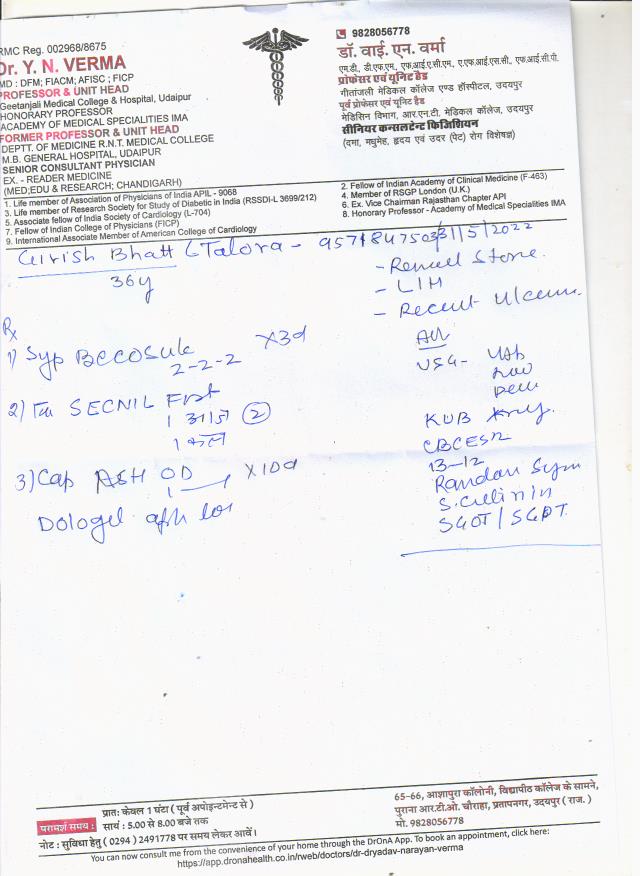 RMC Reg. 002968/8675
Dr. Y. N. VERMA
MD : DFM; FIACM; AFISC ; FICP
PROFESSOR & UNIT HEAD
Geetanjali Medical College & Hospital, Udaipur
HONORARY PROFESSOR
ACADEMY OF MEDICAL SPECIALITIES IMA
FORMER PROFESSOR & UNIT HEAD
DEPTT. OF MEDICINE R.N.T. MEDICAL COLLEGE
M.B. GENERAL HOSPITAL, UDAIPUR
SENIOR CONSULTANT PHYSICIAN
EX. - READER MEDICINE
(MED;EDU & RESEARCH; CHANDIGARH)
9828056778
डॉ. वाई. एन. वर्मा
एम.डी., डी.एफ.एम., एफ.आई.ए.सी.एम., ए.एफ.आई.एस.सी., एफ.आई.सी.पी.
प्रोफेसर एवं यूनिट हैड
गीतांजली मेडिकल कॉलेज एण्ड हॉस्पीटल, उदयपुर
पूर्व प्रोफेसर एवं यूनिट हैड
मेडिसिन विभाग, आर.एन.टी. मेडिकल कॉलेज, उदयपुर
सीनियर कन्सलटेन्ट फिजिशियन
(दमा, मधुमेह, हृदय एवं उदर (पेट) रोग विशेषज्ञ)
1. Life member of Association of Physicians of India APIL - 9068
3. Life member of Research Society for Study of Diabetic in India (RSSDI-L 3699/212)
5. Associate fellow of India Society of Cardiology (L-704)
7. Fellow of Indian College of Physicians (FICP)
9. International Associate Member of American College of Cardiology
2. Fellow of Indian Academy of Clinical Medicine (F-463)
4. Member of RSGP London (U.K.)
6. Ex. Vice Chairman Rajasthan Chapter API
8. Honorary Professor - Academy of Medical Specialities IMA
Girish Bhatt (Talora - 9571847503 31/5/2022
36y
- Renal Stone.
- LIH
- Recent
Rx
1) Syp Becosule x3d
2-2-2
2) Tab SECNIL Fort
1 आज (2)
1 कल
3) Cap ASH OD x10d
1
Dologel
Adv
USG-
KUB
CBC ESR
B-12
Random
S.
SGOT / SGPT.
परामर्श समय :
प्रात: केवल 1 घंटा ( पूर्व अपोइन्टमेन्ट से )
सायं : 5.00 से 8.00 बजे तक
नोट : सुविधा हेतु ( 0294 ) 2491778 पर समय लेकर आवें।
65-66, आशापुरा कॉलोनी, विद्यापीठ कॉलेज के सामने,
पुराना आर.टी.ओ. चौराहा, प्रतापनगर, उदयपुर ( राज. )
मो. 9828056778
You can now consult me from the convenience of your home through the DrOnA App. To book an appointment, click here:
https://app.dronahealth.co.in/rweb/doctors/dr-dryadav-narayan-verma